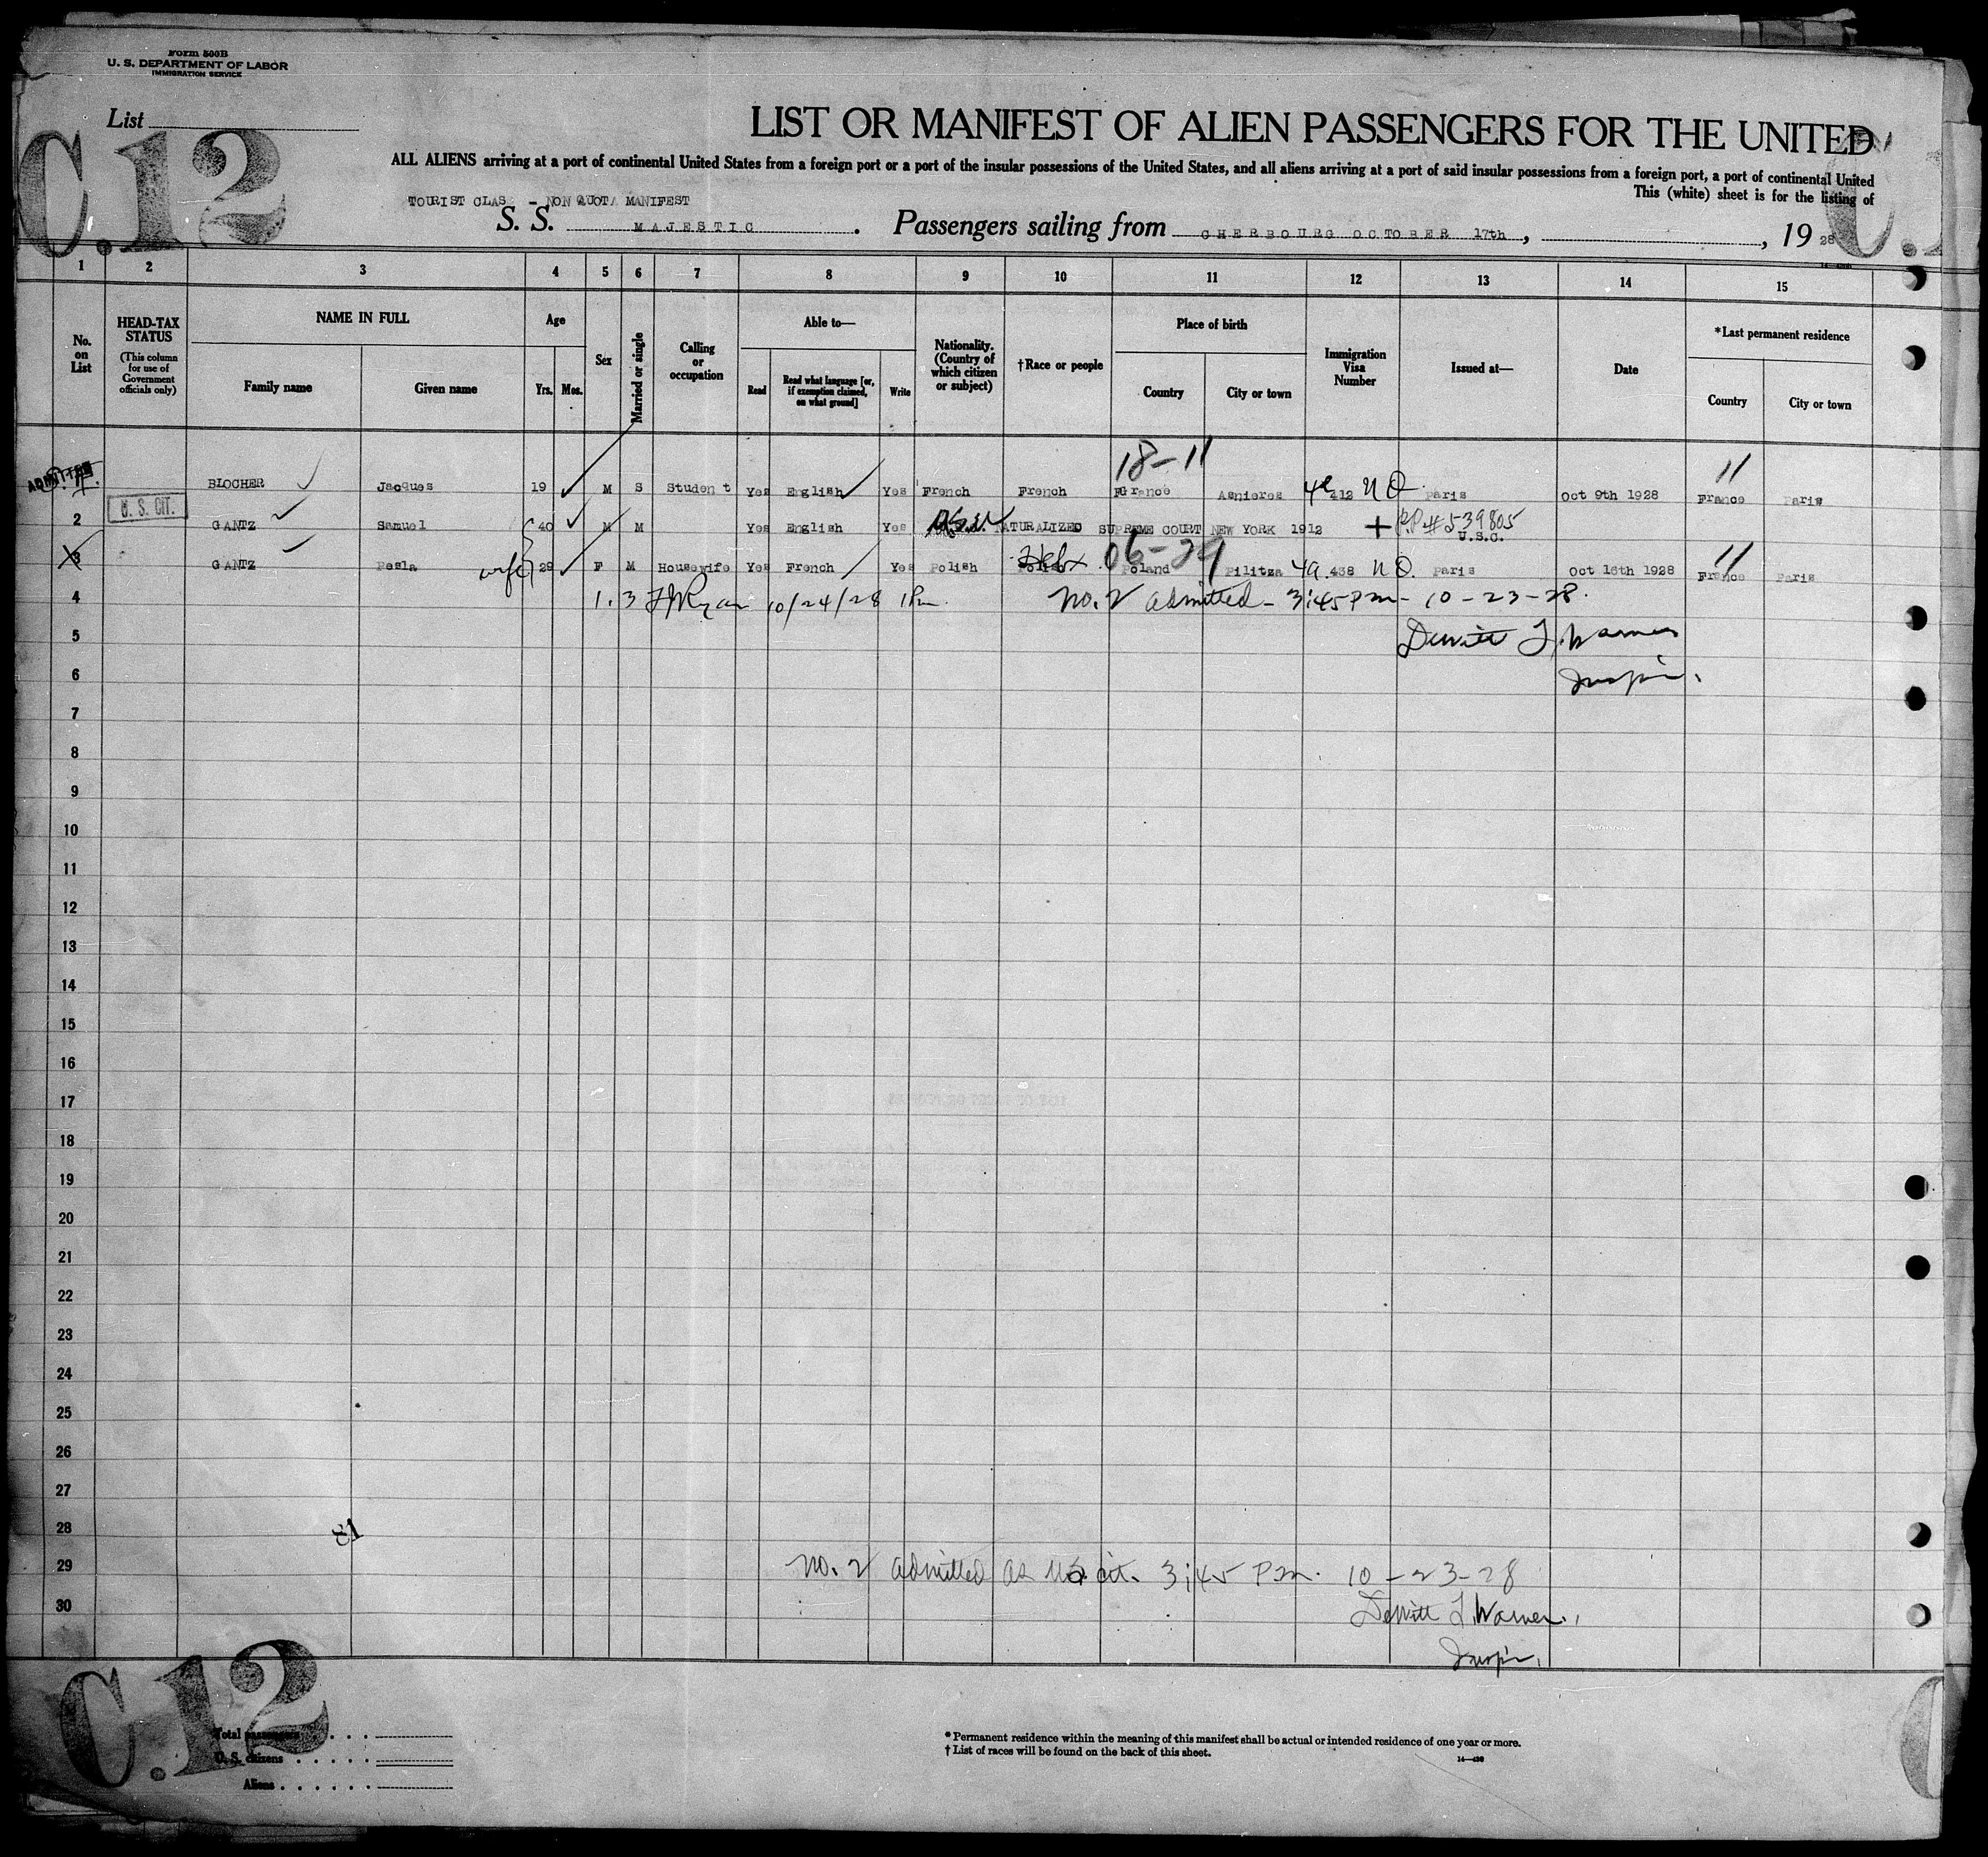 Form 500B
U. S. DEPARTMENT OF LABOR
IMMIGRATION SERVICE
List
C.12
LIST OR MANIFEST OF ALIEN PASSENGERS FOR THE UNITED
ALL ALIENS arriving at a port of continental United States from a foreign port or a port of the insular possessions of the United States, and all aliens arriving at a port of said insular possessions from a foreign port, a port of continental United
This (white) sheet is for the listing of
TOURIST CLASS - NON QUOTA MANIFEST
S. S. MAJESTIC. Passengers sailing from CHERBOURG OCTOBER 17th, , 19 28
1 2 3 4 5 6 7 8 9 10 11 12 13 14 15
No. on List
HEAD-TAX STATUS
(This column for use of Government officials only)
NAME IN FULL
Family name Given name
Age
Yrs. Mos.
Sex
Married or single
Calling or occupation
Able to—
Read Read what language [or, if exemption claimed, on what ground] Write
Nationality. (Country of which citizen or subject)
†Race or people
Place of birth
Country City or town
Immigration Visa Number
Issued at—
Date
*Last permanent residence
Country City or town
18-11 11
ADMITTED BLOCHER Jacques 19 M S Student Yes English Yes French French France Asnieres 4e 412 NQ Paris Oct 9th 1928 France Paris
U. S. CIT.
2 GANTZ Samuel 40 M M Yes English Yes NATURALIZED SUPREME COURT NEW YORK 1912 + PP#539805
U.S.C.
06-29 11
3 GANTZ Pesla wife 29 F M Housewife Yes French Yes Polish Heb Poland Pilitza 4a 438 NQ Paris Oct 16th 1928 France Paris
4 1.3 FJRyan 10/24/28 1Pm. No. 2 admitted - 3:45 Pm - 10-23-28.
5 Dewitt L. Warner
6 Inspr.
7
8
9
10
11
12
13
14
15
16
17
18
19
20
21
22
23
24
25
26
27
28 81
29 No. 2 admitted as US cit. 3:45 Pm. 10-23-28
30 Dewitt L. Warner.
Inspr.
C.12
Total passengers
U. S. citizens
Aliens
* Permanent residence within the meaning of this manifest shall be actual or intended residence of one year or more.
† List of races will be found on the back of this sheet.